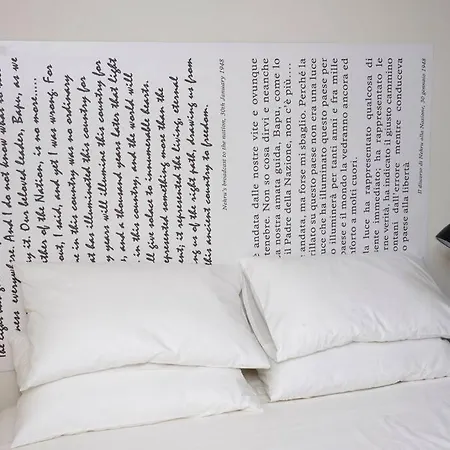 The light has
ness everywhere. And I do not know what
y it. Our beloved leader, Bapu, as we
ther of the Nation, is no more.....
out, I said, and yet I was wrong. For
e in this country was no ordinary
at has illuminated this country for
y years will illumine this country for
, and a thousand years later that light
in this country, and the world will
ll give solace to innumerable hearts.
epresented something more than the
t; it represented the living, eternal
ng us of the right path, drawing us from
this ancient country to freedom.
Nehru's broadcast to the nation, 30th January 1948
è andata dalle nostre vite e ovunque
enebre. Non so cosa dirvi e neanche
nostra amata guida, Bapu, come lo
il Padre della Nazione, non c'è più….
andata, ma forse mi sbaglio. Perché la
rillato su questo paese non era una luce
luce che ha illuminato questo paese per
o illuminerà per tanti anni e fra mille
paese e il mondo la vedranno ancora ed
nforto a molti cuori.
la luce ha rappresentato qualcosa di
sente immediato; ha rappresentato le
rne verità, ha indicato il giusto cammino
ontani dall'errore mentre conduceva
o paese alla libertà
Il discorso di Nehru alla Nazione, 30 gennaio 1948